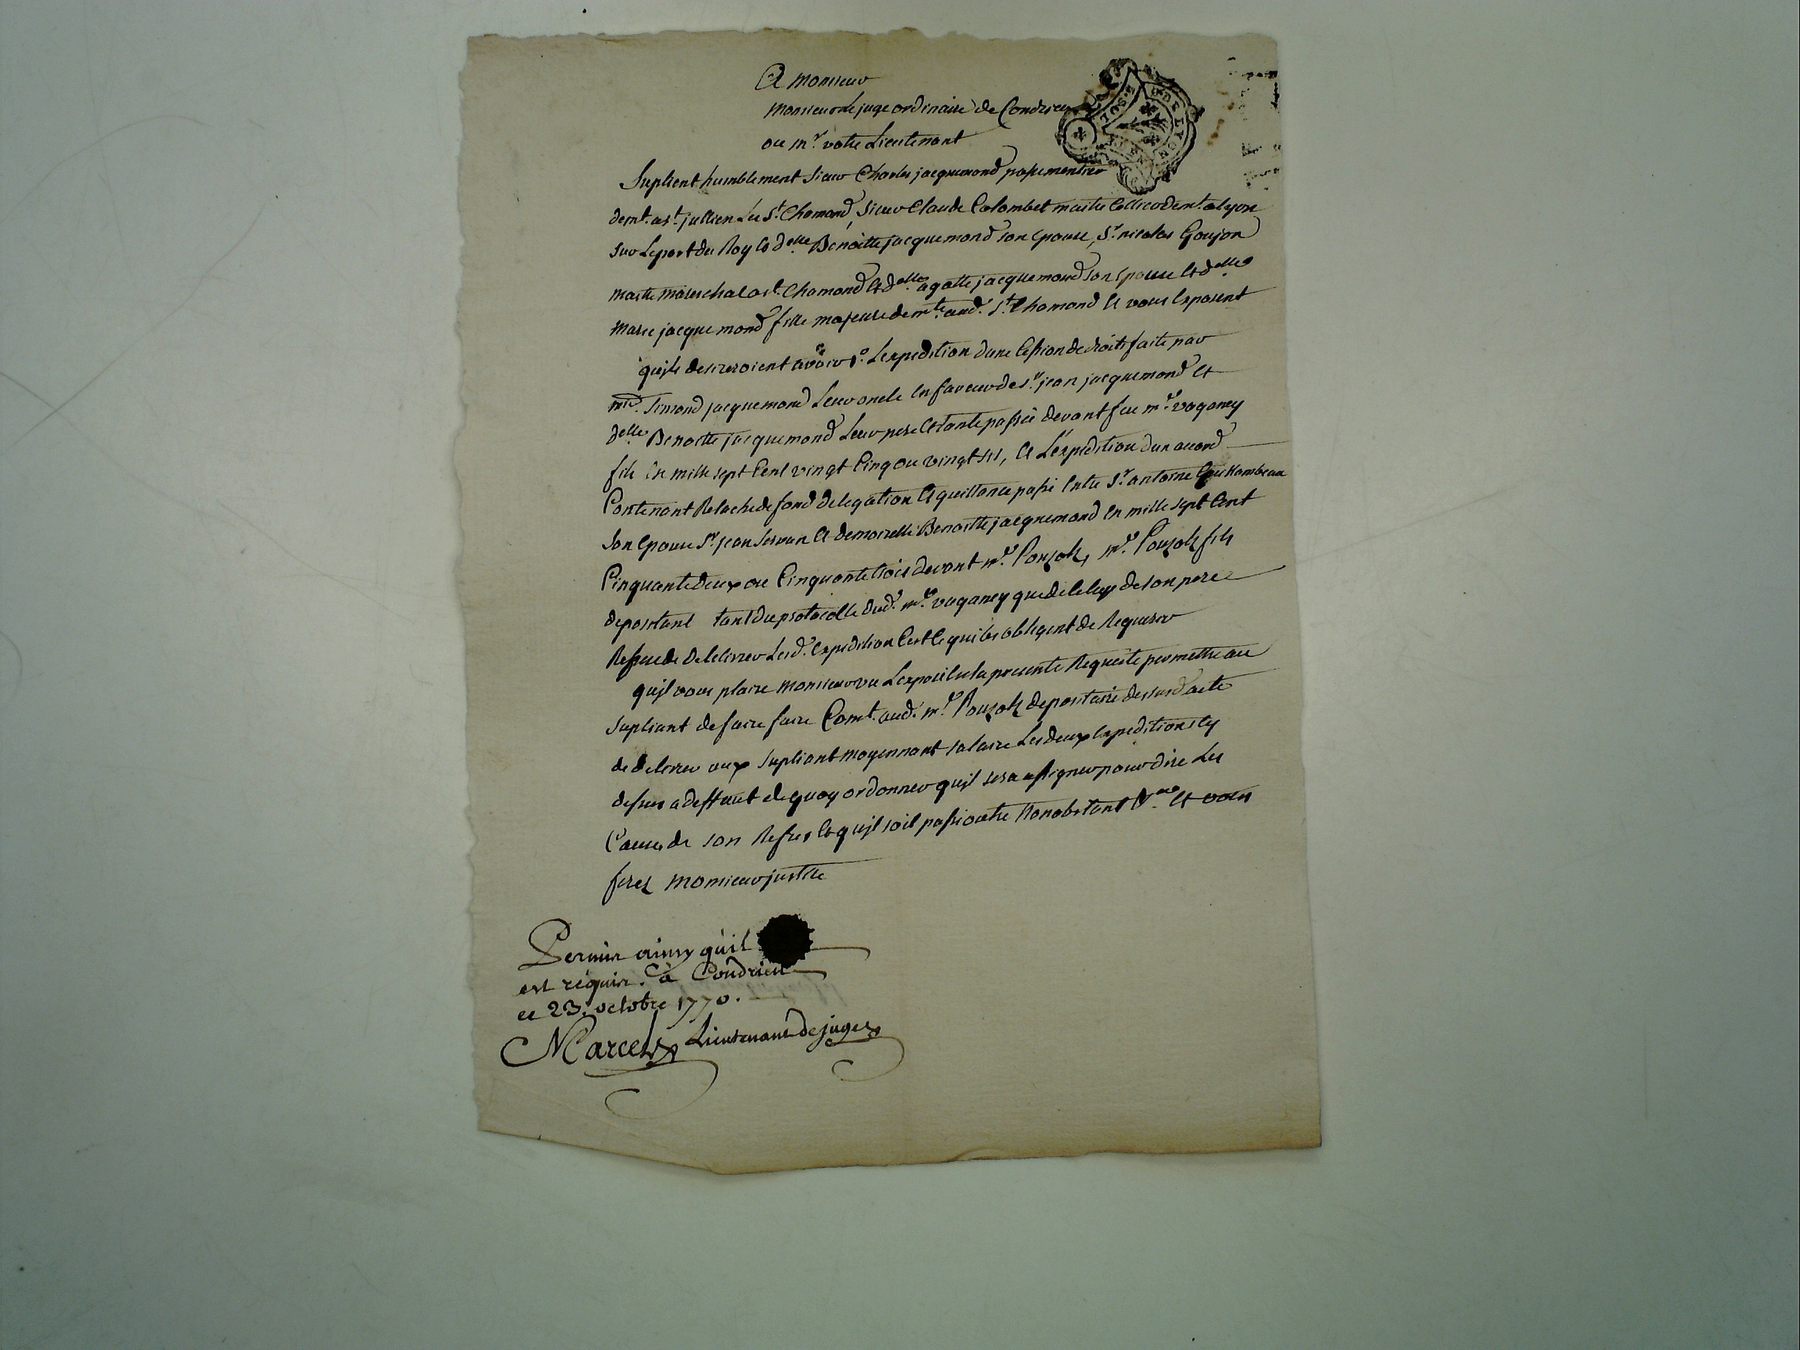 A monsieur
monsieur le juge ordinaire de Condrieu
ou mr. votre Lieutenant
Suplient humblement Sieur Charles jacquemond passementier
demt. a st. jullien Les St. Chamond, Sieur Claude Colombet maitre Cellier demt a lyon
sur Le port du Roy et delle Benoitte jacquemond son epouse, Sr. nicolas Goujon
maitre mareschal a st. Chamond et delle agatte jacquemond son epouse et delle
marie jacquemond fille majeure demte. aud. St. Chamond et vous Exposent
quils desireroient avoir 1o. Lexpedition dune Cession de droits faite par
mre. Simond jacquemond Leur oncle en faveur de sr. jean jacquemond et
delle Benoitte jacquemond Leur pere et tante passée devant feu me. vaganey
fils en mille sept Cent vingt Cinq ou vingt six, et Lexpedition dun accord
Contenant Relache de fond delegation et quittance passé Entre Sr. antoine
son epouse Sr. jean Servan et demoiselle Benoitte jacquemond en mille sept Cent
Cinquante deux ou Cinquante trois devant me. Ponzol, me. Ponzol fils
depositaire tant du protocolle dud. me. vaganey que de Celuy de son pere
Refuse de delivrer Lesd. Expedition Cest Ce qui les obligent de Requerir
quil vous plaise monsieur vu Lexposé en la presente Requete permettre au
supliant de faire faire Comt. aud. me. Ponzol depositaire desusd. acte
de delivrer aux supliant moyennant salaire Les deux Expeditions Cy
dessus a deffaut de quoy ordonner quil sera assigner pour dire Les
Causes de son Refus et quil soit passé outre Nonobstant et vous
ferez monsieur justice
Permis ainsy qu'il
est réquis. à Condrieu
ce 23. octobre 1770.
Marcel Lieutenant de juge